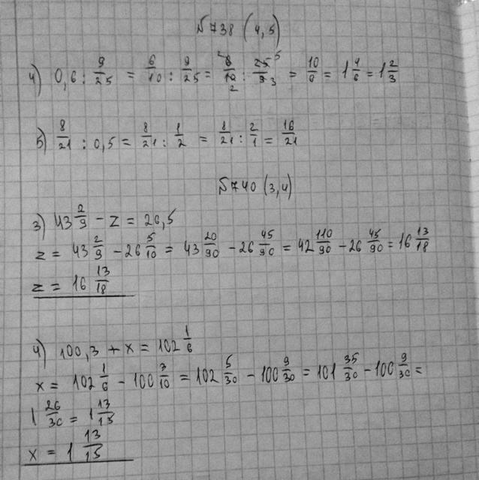 №738 (4,5)
4) 0,6 : 9/25 = 6/10 : 9/25 = 6/10 : 25/9 = 10/6 = 1 4/6 = 1 2/3
5) 8/21 : 0,5 = 8/21 : 1/2 = 8/21 : 2/1 = 16/21
№740 (3,4)
3) 43 2/9 - z = 26,5
z = 43 2/9 - 26 5/10 = 43 20/90 - 26 45/90 = 42 110/90 - 26 45/90 = 16 13/18
z = 16 13/18
4) 100,3 + x = 102 1/6
x = 102 1/6 - 100 3/10 = 102 5/30 - 100 9/30 = 101 35/30 - 100 9/30 =
1 26/30 = 1 13/15
x = 1 13/15